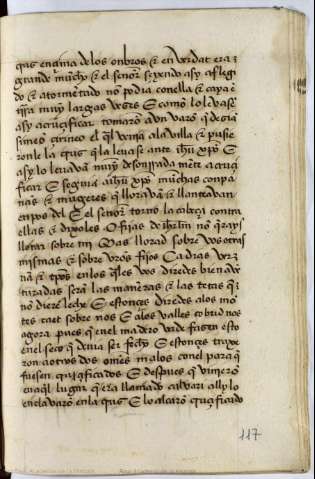 crus en çima de los onbros & en verdat era
grande mucho & el señor seyendo asy afligi
do & atormentado no podia con ella & caya en
trra muy largas vezes E como lo levasen
asy a crucificar tomaron a vn varon q dezian
simeon çirineo el ql venia ala villa & pusie
ronle la crus q la levase ante ihu xpo E
asy lo levavan muy desonrrada mente a cruci
ficar E seguian a ihu xpo muchas conpa
ñas & mugeres q lloravan & llanteavan
en pos del E el señor torno la cabeça contra
ellas & dixoles O fijas de ihrlm no querays
llorar sobre mi Mas llorad sobre vos otras
mismas & sobre vros fijos Ca dias ver
nan & tpos en los qles vos diredes bien aven
turadas seran las mañeras & las tetas q
no dieren leche E estonçes diredes alos mon
tes caet sobre nos E alos valles cobrid nos
agora pues q en el madero verde fazen esto
en el seco q devia ser fecho E estonçes traxe
ron a otros dos omes malos con el para q
fuesen cruçificados E despues q vinieron
en aql lugar q era llamado calvari ally lo
enclavaron en la crus E lo alçaron cruçificado
117